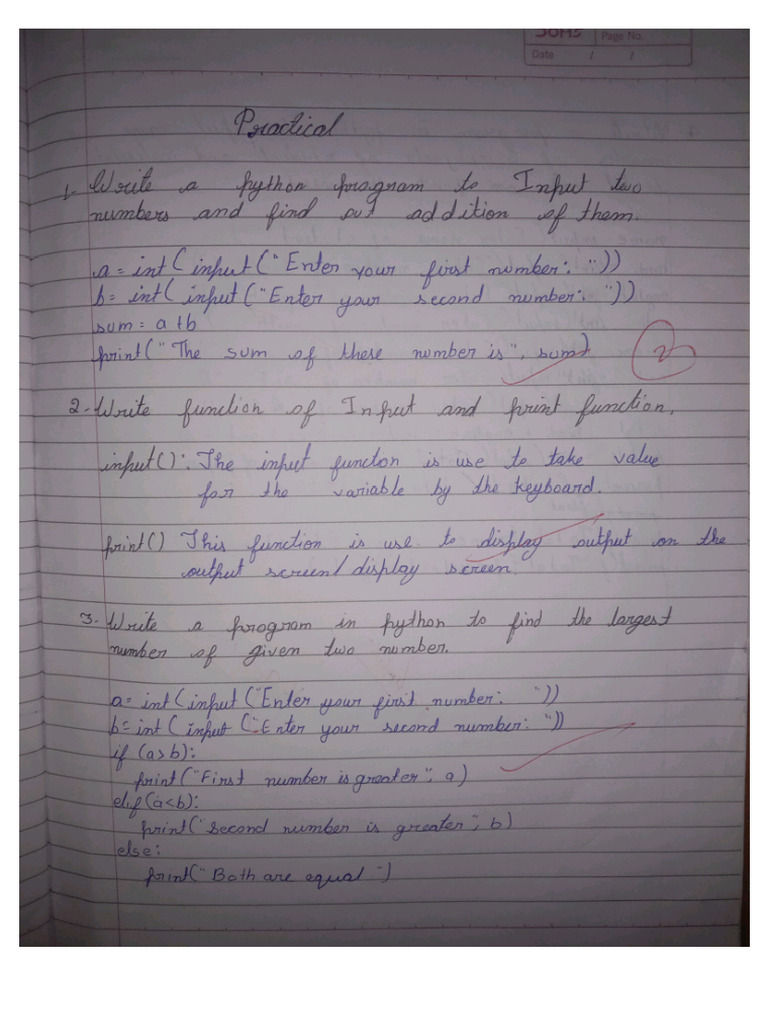 SOMS Page No.
Date / /
Practical
1. Write a python program to Input two
numbers and find out addition of them.
a = int(input("Enter your first number: "))
b = int(input("Enter your second number: "))
sum = a+b
print("The sum of these number is", sum)
2. Write function of Input and print function.
input(): The input functon is use to take value
for the variable by the keyboard.
print() This function is use to display output on the
output screen/display screen.
3. Write a program in python to find the largest
number of given two number.
a = int(input("Enter your first number: "))
b = int(input("Enter your second number: "))
if (a>b):
print("First number is greater", a)
elif(a<b):
print("Second number is greater", b)
else:
print("Both are equal")